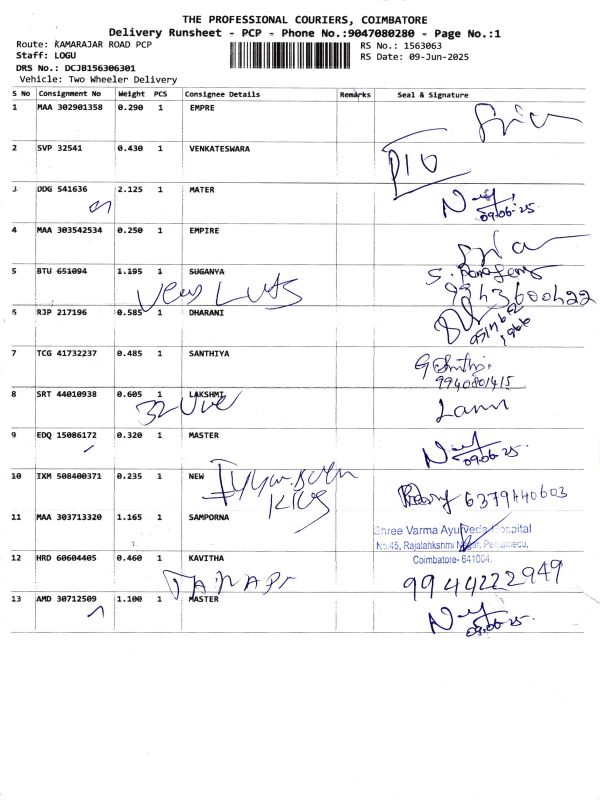 THE PROFESSIONAL COURIERS, COIMBATORE
Delivery Runsheet - PCP - Phone No.:9047080280 - Page No.:1
Route: KAMARAJAR ROAD PCP
Staff: LOGU
DRS No.: DCJB156306301
Vehicle: Two Wheeler Delivery
RS No.: 1563063
RS Date: 09-Jun-2025
S No Consignment No Weight PCS Consignee Details Remarks Seal & Signature
1 MAA 302901358 0.290 1 EMPRE
2 SVP 32541 0.430 1 VENKATESWARA
3 DDG 541636 2.125 1 MATER
09.06.25.
4 MAA 303542534 0.250 1 EMPIRE
5 BTU 651094 1.195 1 SUGANYA
6 RJP 217196 0.585 1 DHARANI
7 TCG 41732237 0.485 1 SANTHIYA
9940801415
8 SRT 44010938 0.605 1 LAKSHMI
9 EDQ 15086172 0.320 1 MASTER
09.06.25.
10 IXM 508400371 0.235 1 NEW
6379440603
11 MAA 303713320 1.165 1 SAMPORNA
Shree Varma Ayurveda Hospital
No.45, Rajalahkshmi Nagar,
Coimbatore- 641004.
12 HRD 60604405 0.460 1 KAVITHA
9944222949
13 AMD 30712509 1.100 1 MASTER
09.06.25.